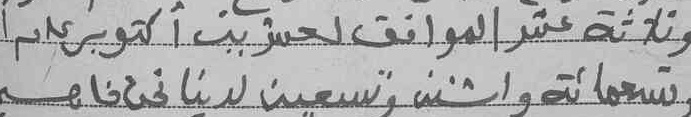 وثلاثة عشر الموافق لعشرين أكتوبر عام
وتسعمائة واثنين وتسعين لدينا نحن